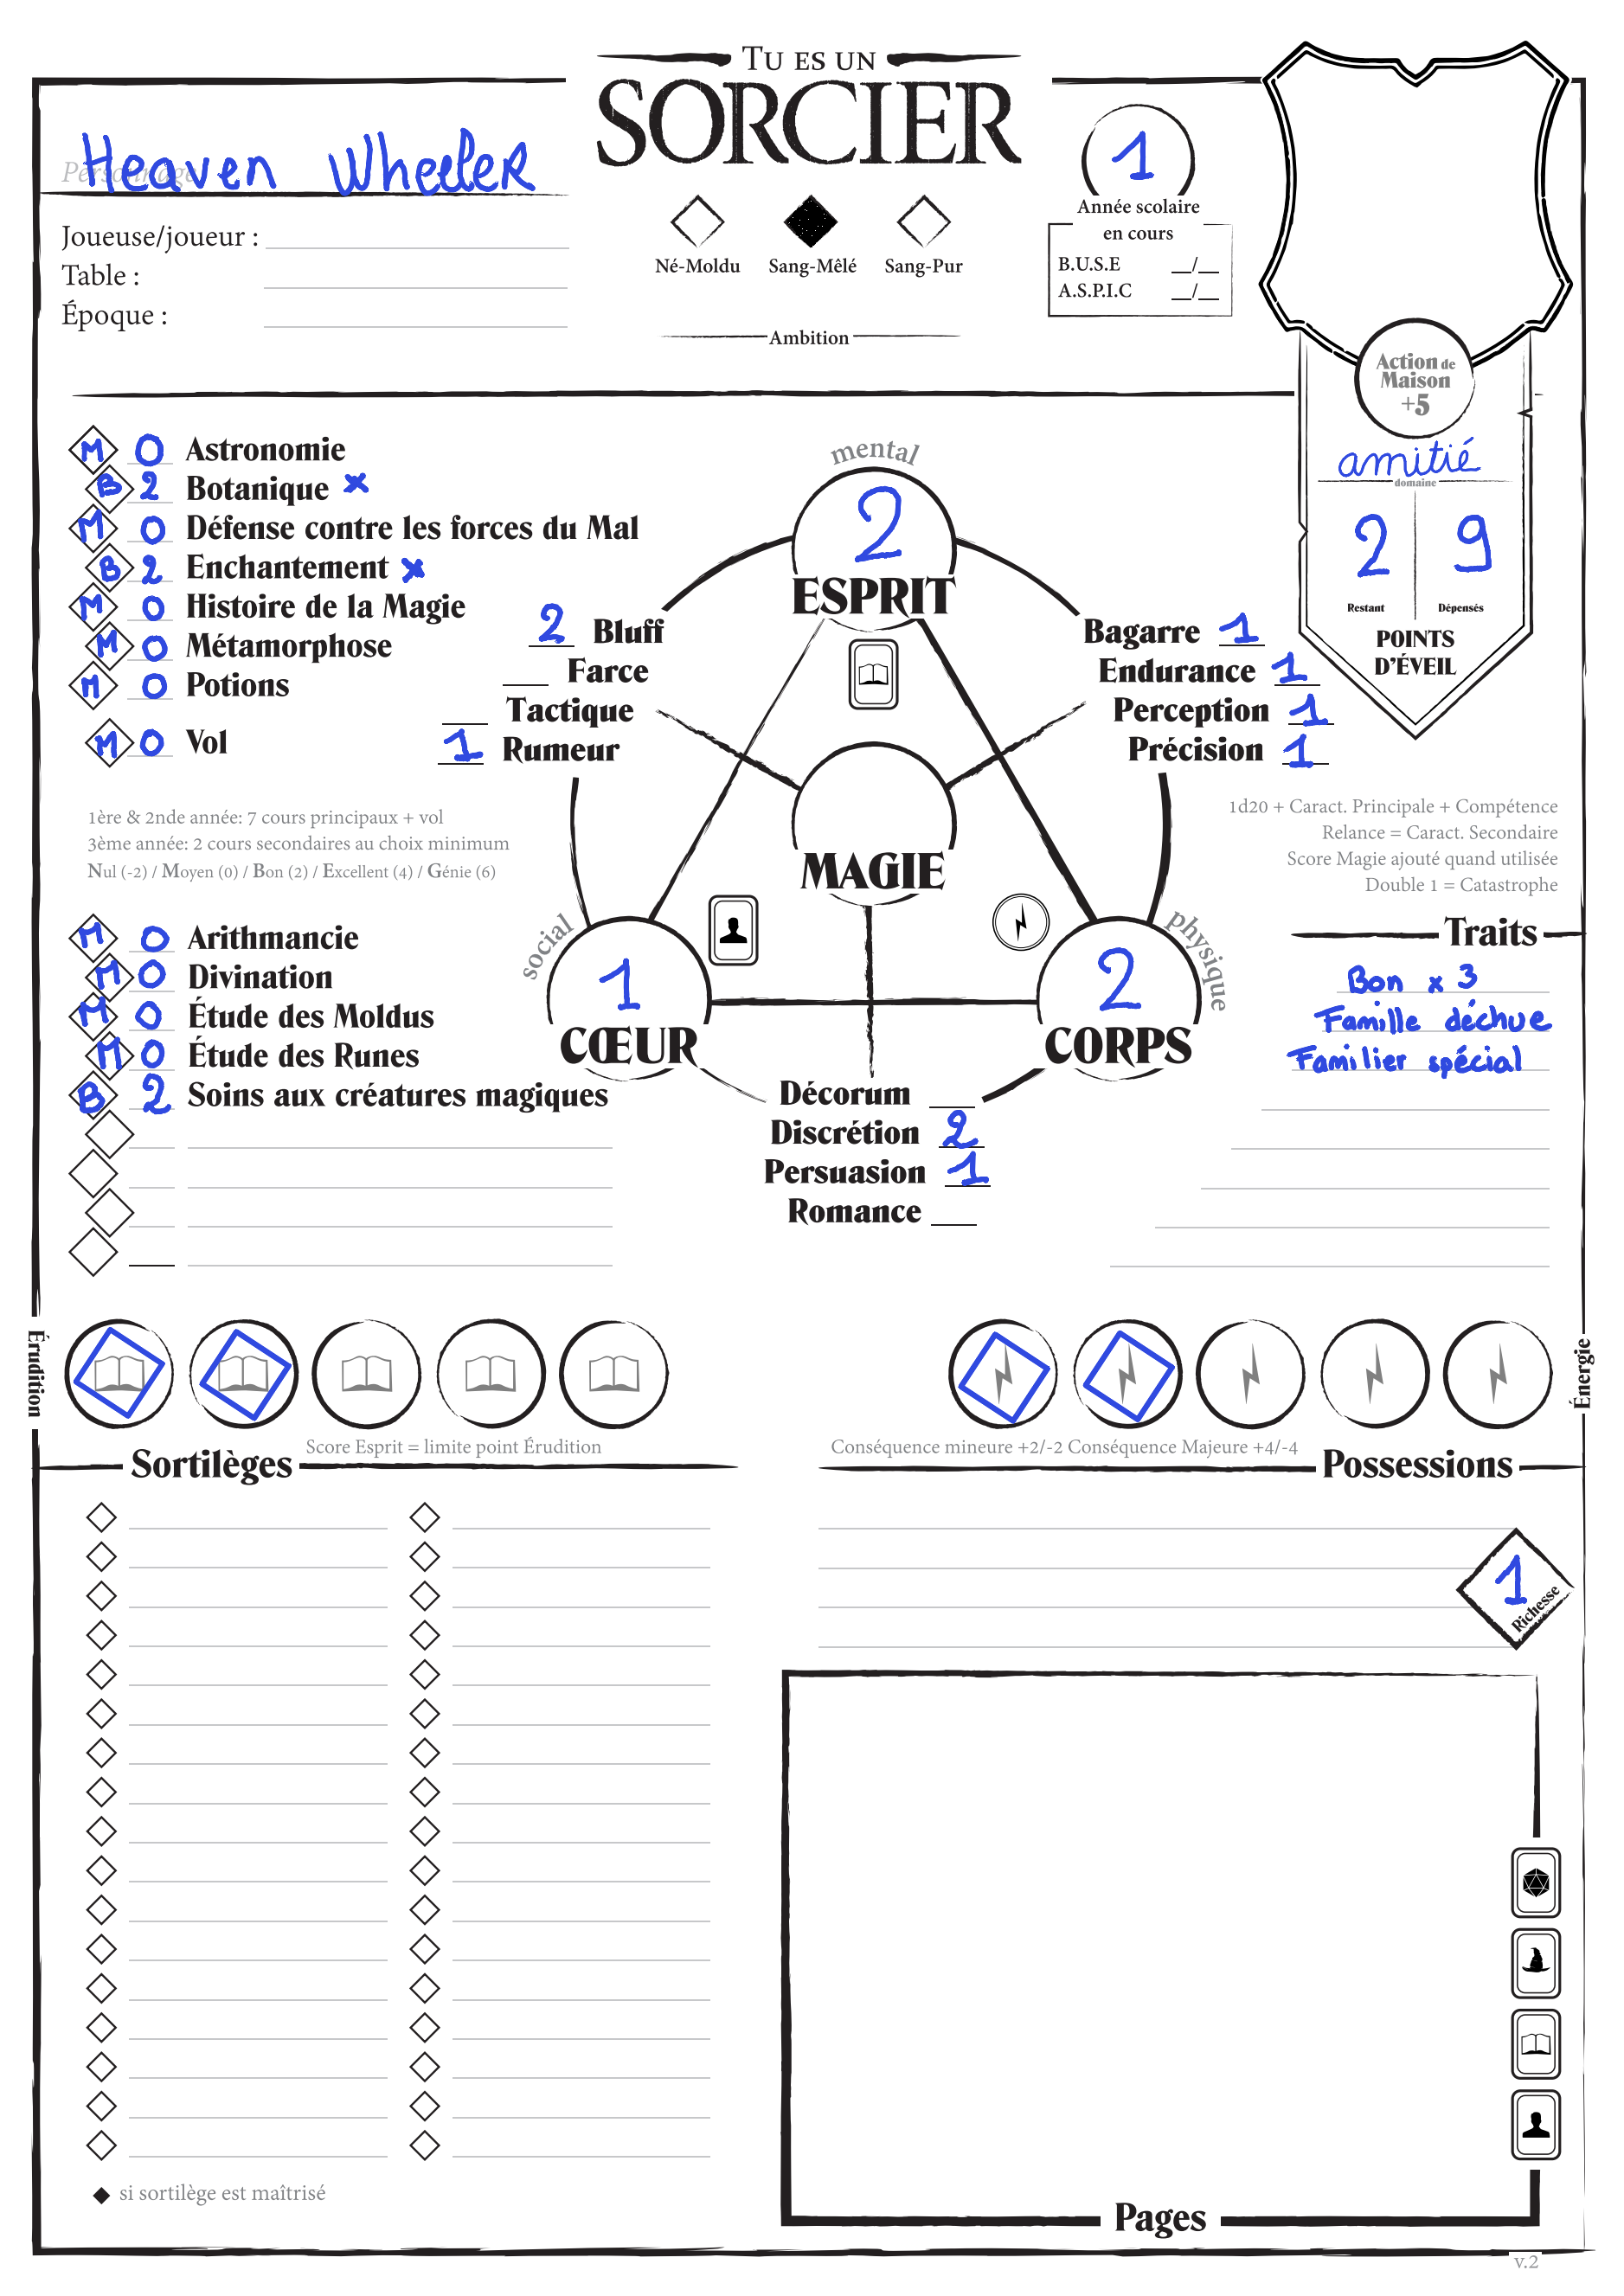 TU ES UN
SORCIER
Personnage
Heaven Wheeler
Joueuse/joueur :
Table :
Époque :
Né-Moldu Sang-Mêlé Sang-Pur
Ambition
1
Année scolaire
en cours
B.U.S.E __/__
A.S.P.I.C __/__
Action de
Maison
+5
amitié
domaine
2 9
Restant Dépensés
POINTS
D'ÉVEIL
M 0 Astronomie
B 2 Botanique x
M 0 Défense contre les forces du Mal
B 2 Enchantement x
M 0 Histoire de la Magie
M 0 Métamorphose
M 0 Potions
M 0 Vol
1ère & 2nde année: 7 cours principaux + vol
3ème année: 2 cours secondaires au choix minimum
Nul (-2) / Moyen (0) / Bon (2) / Excellent (4) / Génie (6)
M 0 Arithmancie
M 0 Divination
M 0 Étude des Moldus
M 0 Étude des Runes
B 2 Soins aux créatures magiques
mental
2
ESPRIT
2 Bluff
Farce
Tactique
1 Rumeur
Bagarre 1
Endurance 1
Perception 1
Précision 1
MAGIE
social
1
CŒUR
physique
2
CORPS
Décorum
Discrétion 2
Persuasion 1
Romance
1d20 + Caract. Principale + Compétence
Relance = Caract. Secondaire
Score Magie ajouté quand utilisée
Double 1 = Catastrophe
Traits
Bon x 3
Famille déchue
Familier spécial
Érudition
Énergie
Score Esprit = limite point Érudition
Sortilèges
Conséquence mineure +2/-2 Conséquence Majeure +4/-4
Possessions
1
Richesse
si sortilège est maîtrisé
Pages
v.2